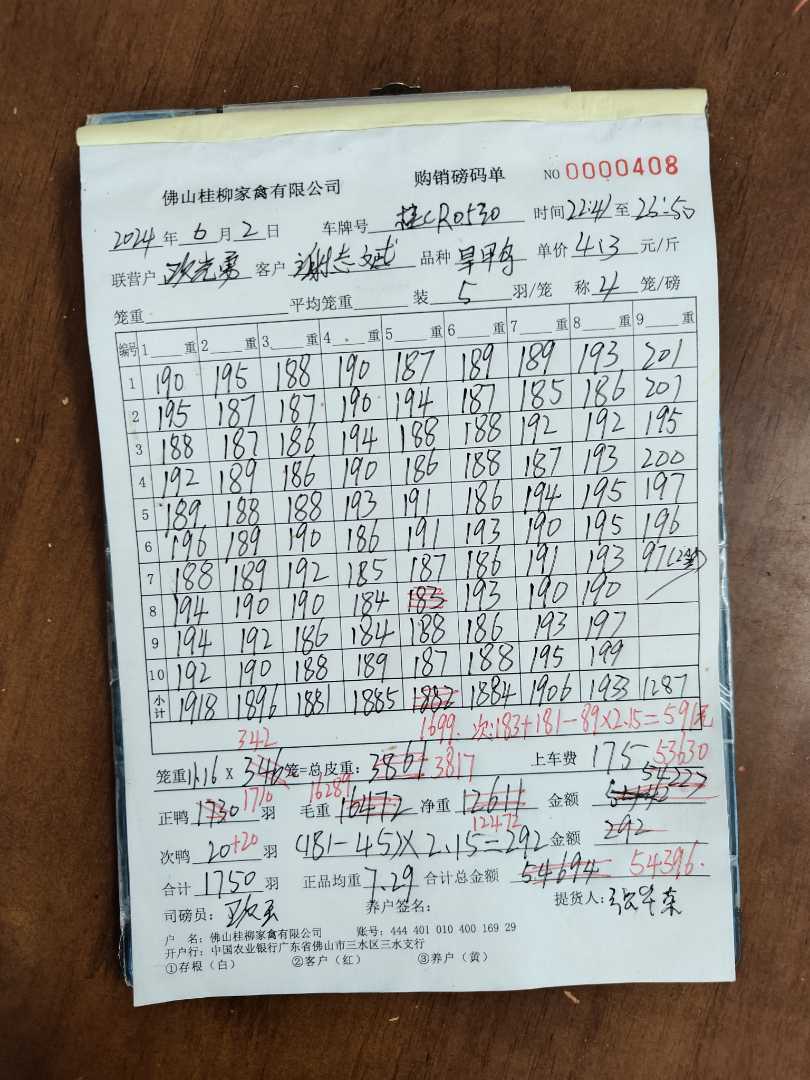 佛山桂柳家禽有限公司 购销磅码单 NO 0000408
2024年6月2日 车牌号 桂CR0530 时间22:41至23:50
联营户 客户 谢志文 品种 单价 4.13 元/斤
笼重 平均笼重 装 5 羽/笼 称 4 笼/磅
编号 1 重 2 重 3 重 4 重 5 重 6 重 7 重 8 重 9 重
1 190 195 188 190 187 189 189 193 201
2 195 187 187 190 194 187 185 186 201
3 188 187 186 194 188 188 192 192 195
4 192 189 186 190 186 188 187 193 200
5 189 188 188 193 191 186 194 195 197
6 196 189 190 186 191 193 190 195 196
7 188 189 192 185 187 186 191 193 97(2笼)
8 194 190 190 184 183 193 190 190
9 194 192 186 184 188 186 193 197
10 192 190 188 189 187 188 195 199
小计 1918 1896 1881 1885 1882 1884 1906 1933 1287
342 1699. 次:183+181-89×2.15=591元
笼重 11.16 × 346 笼=总皮重: 3861 3817 上车费 175 53630
正鸭 1730 1710 羽 毛重 16472 16289 净重 12611 12472 金额 54227
次鸭 20 +20 羽 (181-45)×2.15=292 金额 292
合计 1750 羽 正品均重 7.29 合计总金额 54694 54396.
司磅员: 养户签名: 提货人:
户 名: 佛山桂柳家禽有限公司 账号: 444 401 010 400 169 29
开户行: 中国农业银行广东省佛山市三水区三水支行
①存根（白） ②客户（红） ③养户（黄）